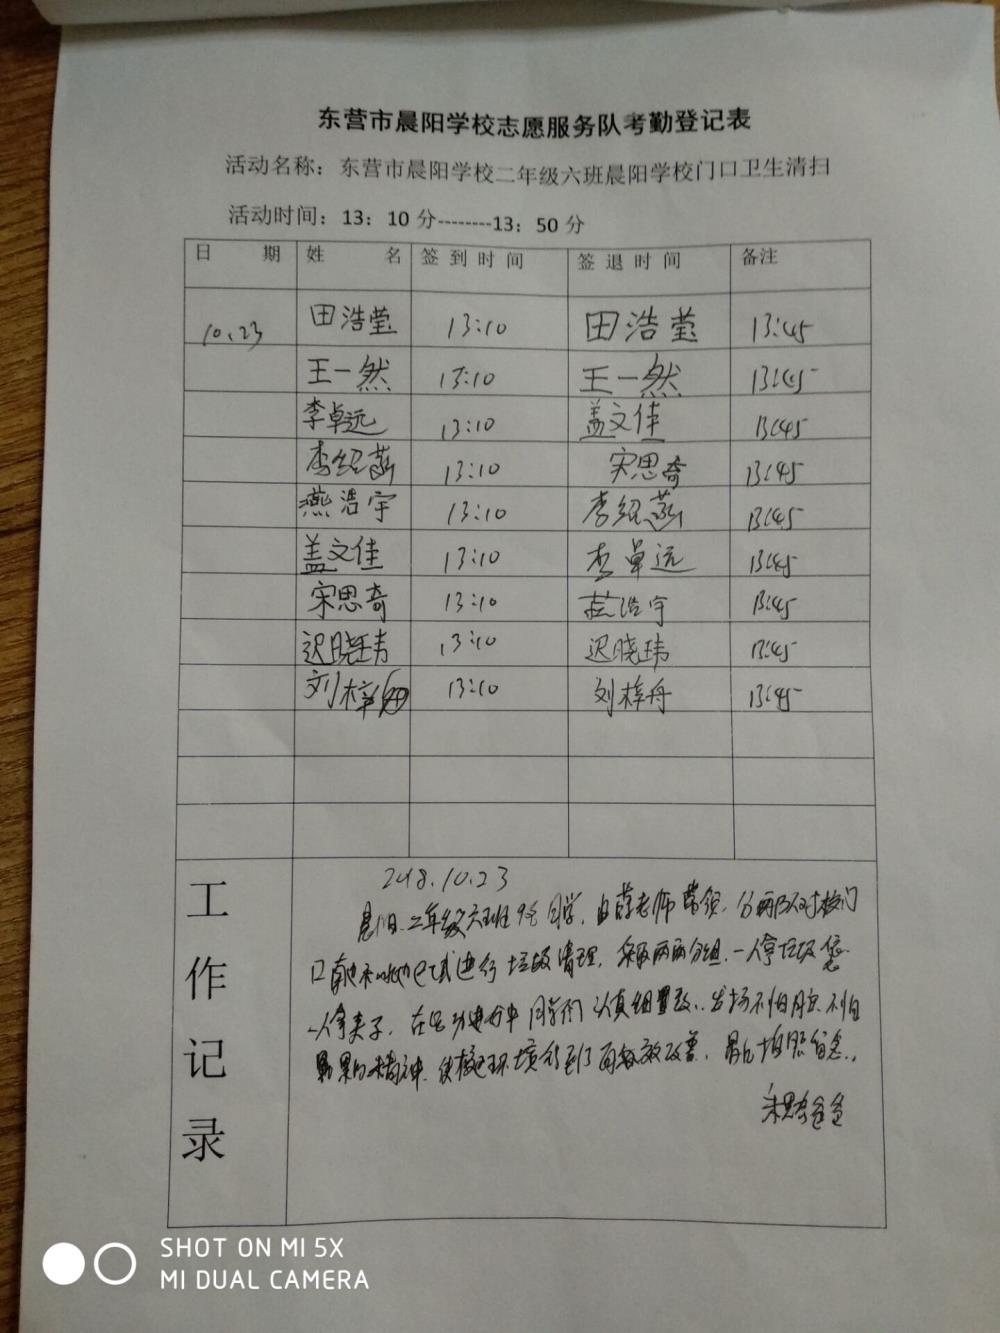 东营市晨阳学校志愿服务队考勤登记表
活动名称：东营市晨阳学校二年级六班晨阳学校门口卫生清扫
活动时间：13：10分--------13：50分
日 期 姓 名 签到时间 签退时间 备注
10.23 田浩莹 13:10 田浩莹 13:45
王一然 13:10 王一然 13:45
李卓远 13:10 盖文佳 13:45
李绍菡 13:10 宋思奇 13:45
燕浩宇 13:10 李绍菡 13:45
盖文佳 13:10 李卓远 13:45
宋思奇 13:10 燕浩宇 13:45
迟晓玮 13:10 迟晓玮 13:45
刘梓舟 13:10 刘梓舟 13:45
工作记录
2018.10.23
二年级六班9名同学，由薛老师带领，分两队对校门
口 进行垃圾清理，两两分组，一人拿垃圾袋
一人拿夹子，在活动过程中同学们认真细致，发扬不怕脏不怕
累的精神，使校 环境得到了有效改善，最后拍照留念。
宋思奇爸爸
SHOT ON MI 5X
MI DUAL CAMERA